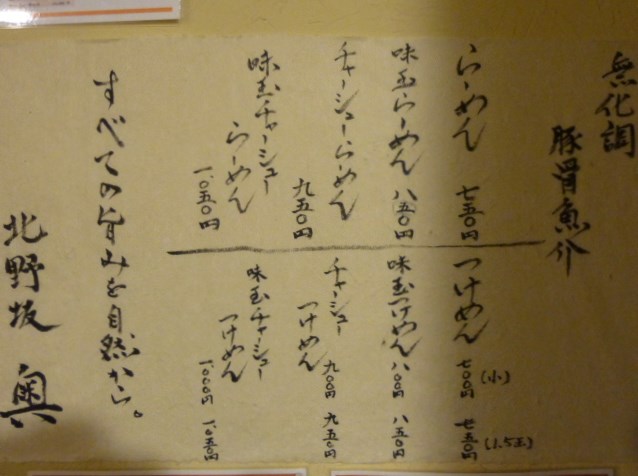 無化調
豚骨魚介
らーめん 七五〇円
味玉らーめん 八五〇円
チャーシューらーめん 九五〇円
味玉チャーシュー
らーめん 一、〇五〇円
つけめん 七〇〇円(小) 七五〇円(1.5玉)
味玉つけめん 八〇〇円 八五〇円
チャーシュー
つけめん 九〇〇円 九五〇円
味玉チャーシュー
つけめん 一、〇〇〇円 一、〇五〇円
すべての旨みを自然から。
北野坂 奥